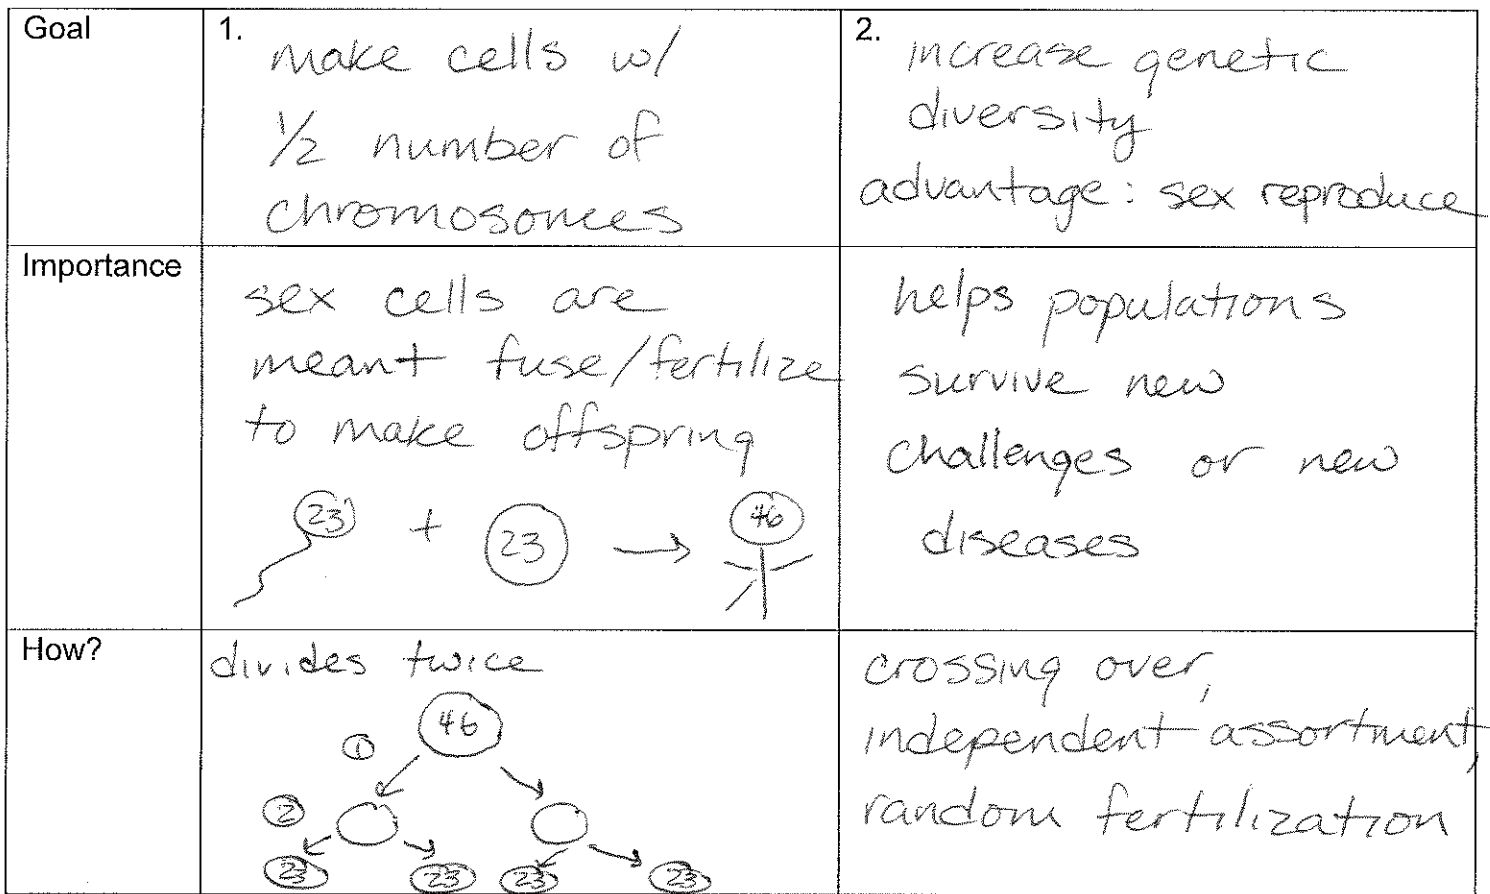 Goal
1.
make cells w/
1/2 number of
chromosomes
2.
increase genetic
diversity
advantage: sex reproduce
Importance
sex cells are
meant fuse/fertilize
to make offspring
23 + 23 → 46
helps populations
survive new
challenges or new
diseases
How?
divides twice
46
①
②
23 23 23 23
crossing over,
independent assortment,
random fertilization